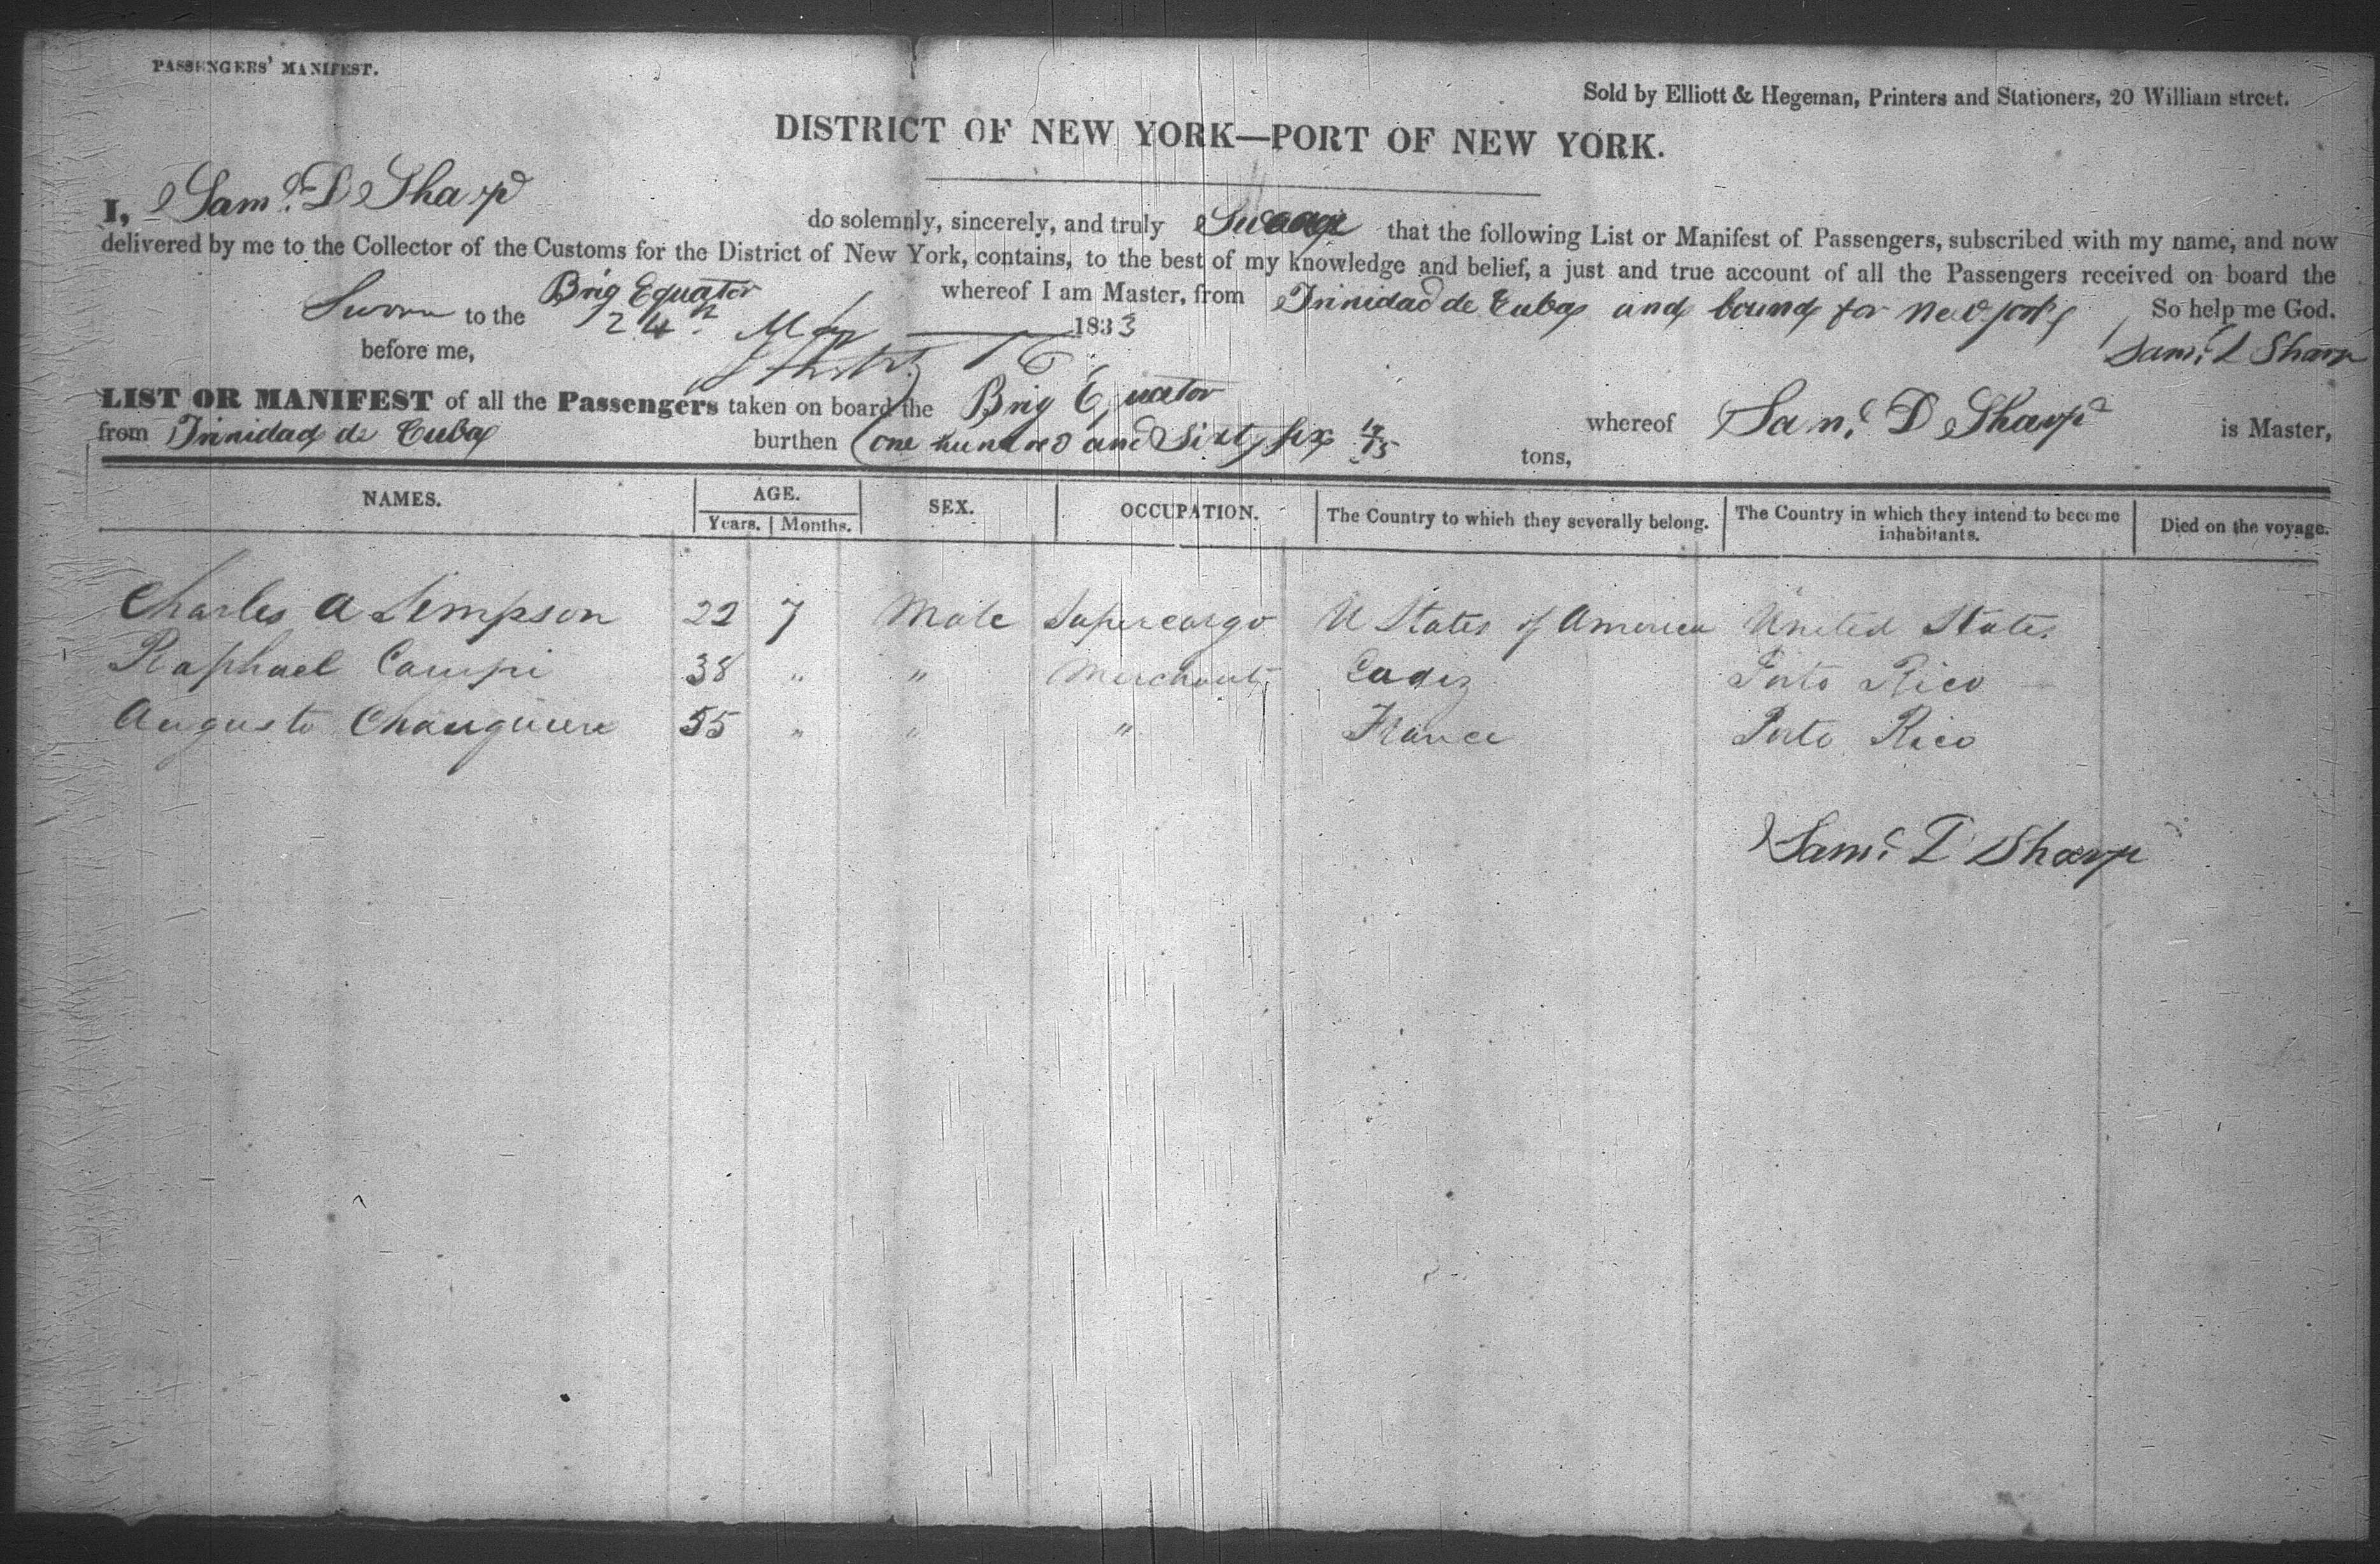 PASSENGERS' MANIFEST.
Sold by Elliott & Hegeman, Printers and Stationers, 20 William street.
DISTRICT OF NEW YORK—PORT OF NEW YORK.
I, Saml. D Sharp do solemnly, sincerely, and truly Swear that the following List or Manifest of Passengers, subscribed with my name, and now
delivered by me to the Collector of the Customs for the District of New York, contains, to the best of my knowledge and belief, a just and true account of all the Passengers received on board the
Brig Equator whereof I am Master, from Trinidad de Cuba and bound for New york So help me God.
Sworn to the 24th May 1833
before me, Saml. D Sharp
LIST OR MANIFEST of all the Passengers taken on board the Brig Equator whereof Saml. D Sharp is Master,
from Trinidad de Cuba burthen one hundred and Sixty six tons,
NAMES. AGE. SEX. OCCUPATION. The Country to which they severally belong. The Country in which they intend to become inhabitants. Died on the voyage.
Years. Months.
Charles A Simpson 22 7 Male Supercargo U States of America United States
Raphael Campi 38 " " Merchant Cadiz Porto Rico
Augusto 55 " " " France Porto Rico
Saml. D Sharp